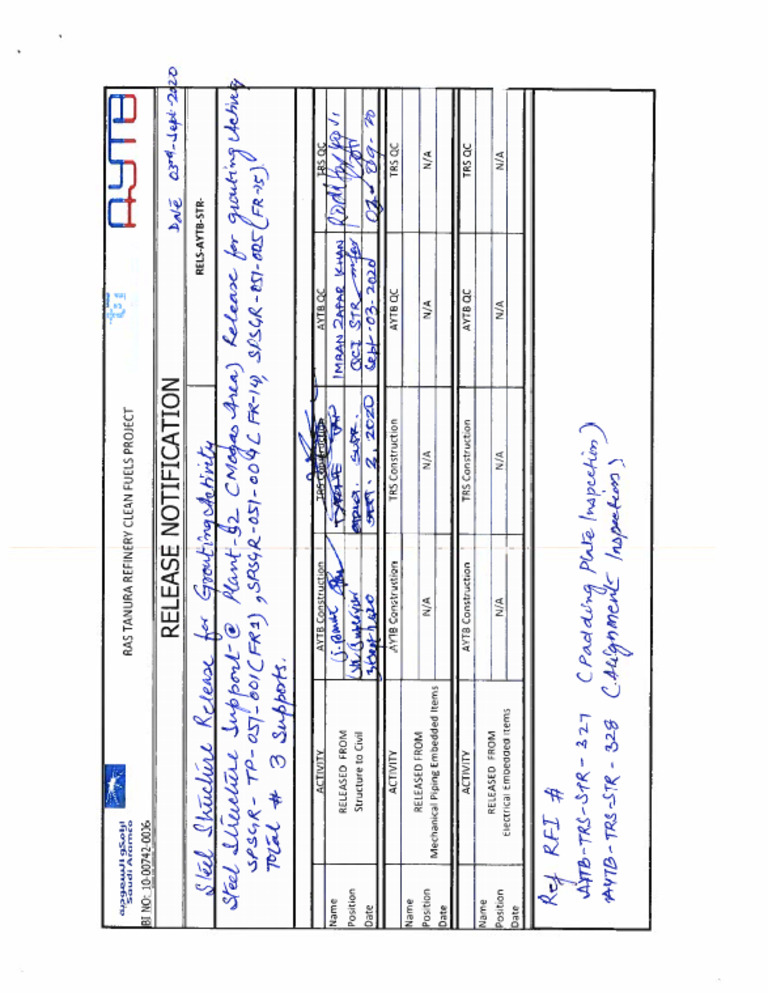 أرامكو السعودية
Saudi Aramco
RAS TANURA REFINERY CLEAN FUELS PROJECT
AYTB
BI NO: 10-00742-0006
RELEASE NOTIFICATION
Date 03rd-Sept-2020
Steel Structure Release for Grouting Activity
RELS-AYTB-STR-
Steel Structure Support @ Plant-52 (Mogas Area) Release for grouting Activity
SPSGR-TP-051-001(FR1), SPSGR-051-004(FR-14), SPSGR-051-005(FR-15)
Total # 3 Supports.
ACTIVITY AYTB Construction TRS Construction AYTB QC TRS QC
Name RELEASED FROM IMRAN ZAFAR KHAN
Position Structure to Civil QCI STR
Date Sept. 2, 2020 Sept-03-2020 03-09-20
ACTIVITY AYTB Construction TRS Construction AYTB QC TRS QC
Name RELEASED FROM
Position N/A N/A N/A N/A
Date Mechanical Piping Embedded Items
ACTIVITY AYTB Construction TRS Construction AYTB QC TRS QC
Name RELEASED FROM
Position N/A N/A N/A N/A
Date Electrical Embedded Items
Ref RFI #
AYTB-TRS-STR-327 (Padding Plate Inspection)
AYTB-TRS-STR-328 (Alignment Inspections)